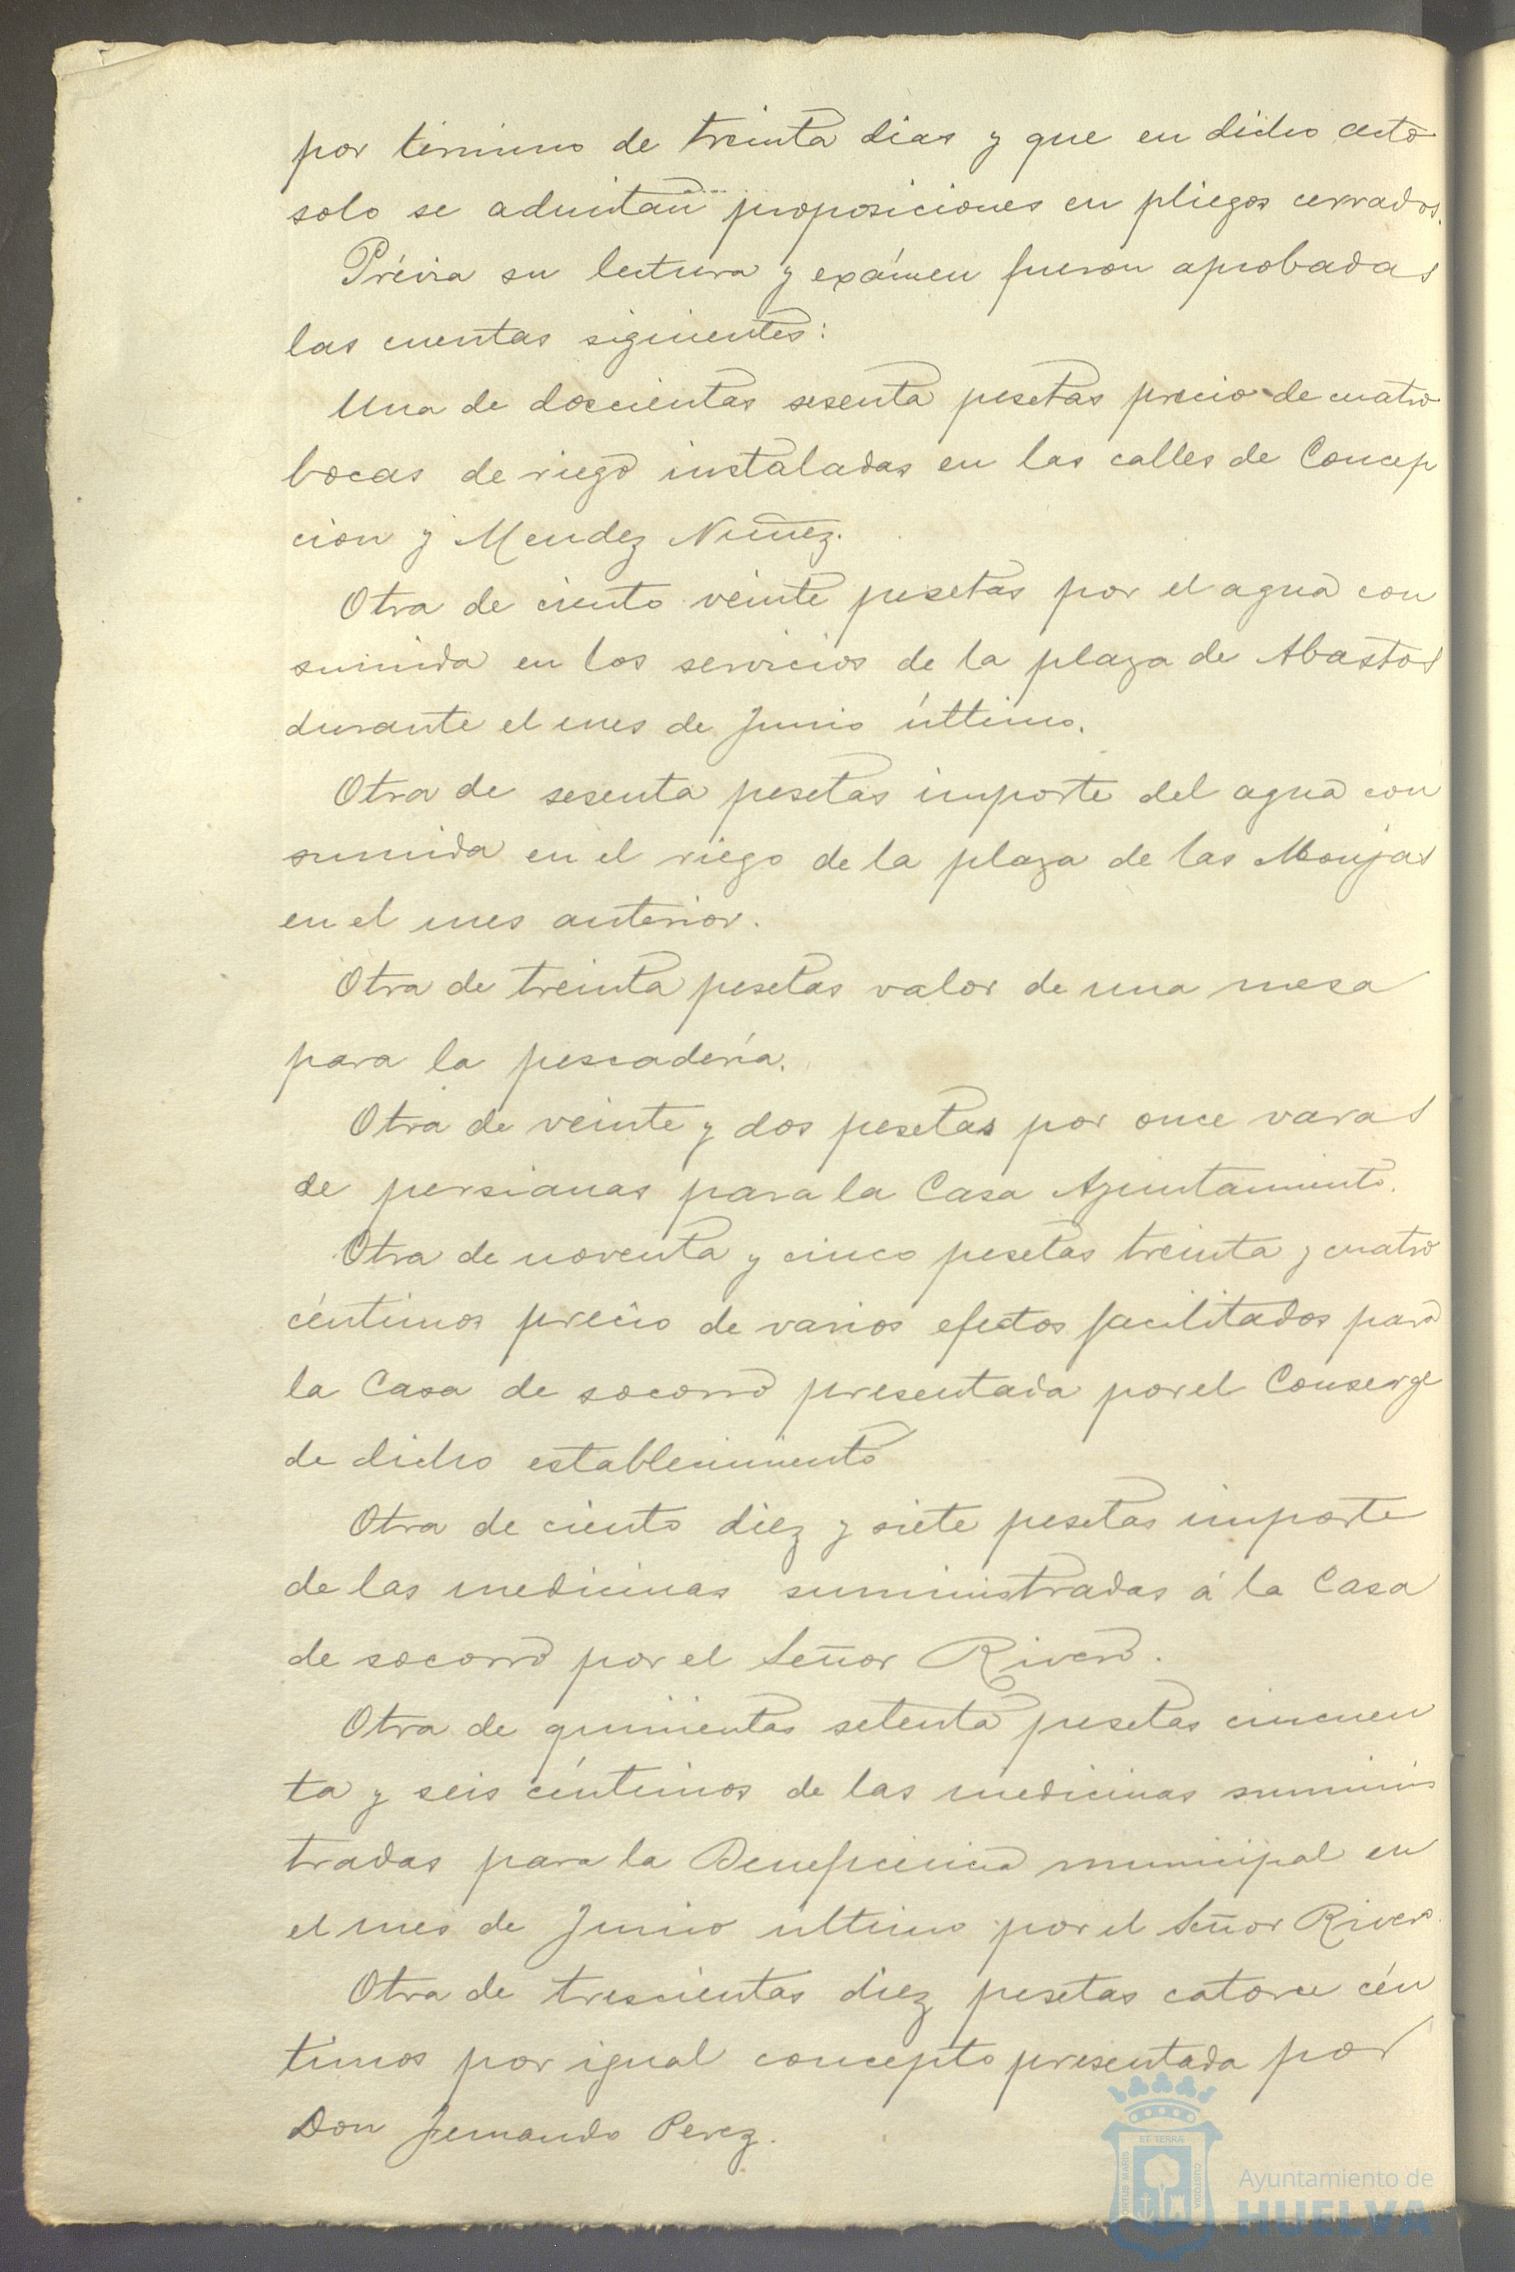 por término de treinta dias y que en dicho acto
solo se admitan proposiciones en pliegos cerrados.
Prévia su lectura y exámen fueron aprobadas
las cuentas siguientes:
Una de doscientas sesenta pesetas precio de cuatro
bocas de riego instaladas en las calles de Concep
cion y Mendez Nuñez.
Otra de ciento veinte pesetas por el agua con
sumida en los servicios de la plaza de Abastos
durante el mes de Junio último.
Otra de sesenta pesetas importe del agua con
sumida en el riego de la plaza de las Monjas
en el mes anterior.
Otra de treinta pesetas valor de una mesa
para la pescadería.
Otra de veinte y dos pesetas por once varas
de persianas para la Casa Ayuntamiento.
Otra de noventa y cinco pesetas treinta y cuatro
céntimos precio de varios efectos facilitados para
la Casa de socorro presentada por el Conserge
de dicho establecimiento
Otra de ciento diez y siete pesetas importe
de las medicinas suministradas á la Casa
de socorro por el Señor Rivero.
Otra de quinientas setenta pesetas cincuen
ta y seis céntimos de las medicinas suminis
tradas para la Beneficencia municipal en
el mes de Junio último por el Señor Rivero.
Otra de trescientas diez pesetas catorce cén
timos por igual concepto presentada por
Don Fernando Perez.
ET TERRÆ
PORTUS MARIS
CUSTODIA
Ayuntamiento de
HUELVA